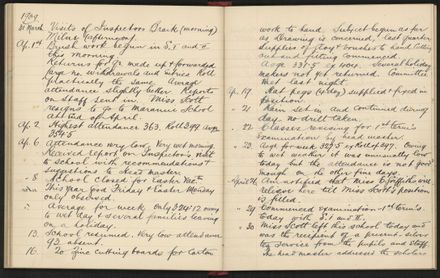 1909
31 March Visits of Inspectors Braik (morning)
Milne (afternoon).
Ap. 1st Brush work begun in S.T and II
this morning.
Returns for Qr made up & forwarded
large no. withdrawals and usual Roll
Practically the same. Average
attendance slightly better. Reports
on staff sent in. Miss Scott
resigns to go to Marainui School
at end of April.
Ap. 2 Highest attendance 363, Roll 399 Avge
354.5
Ap. 6 Attendance very low. Very wet morning
Received report on Inspector's Visit
to school with recommendations &
suggestions to Head master.
" 8 School Closed for Easter Vacn
This year Good Friday & Easter Monday
only observed.
" Average for week only 324.12 owing
to wet day & several families leaving
on a holiday.
13. School resumed. Very low attendance
92 absent.
16. 20 Zinc cutting boards for Carton
work to hand. Subject begun as far
as Drawing is concerned, last quarter
supplies of clay & brushes to hand
out and felting commenced.
Avge 331.3 for wk. Several holiday
makers not yet returned. Committee
met last night.
Ap. 19 Hat pegs (4 doz) supplied & fixed in
position.
" 21 Rain set in and continued during
day. no drill taken.
" 22 Classes revising for 1st term's
examination by head master.
" 23 Avge for week 332.5 ex Roll of 397. Owing
to wet weather it was unusually low
today but the attendance is not good
enough on the other fine days.
April 26 Am notified that Miss Griffiths will
release here till Miss Scott's position
is filled.
" 29 Commenced examination - 1st term's
today with S.1 and II.
" 30 Miss Scott left this school today and
was the recipient of a present - silver
tea service from the pupils and staff.
The head master addressed the scholars